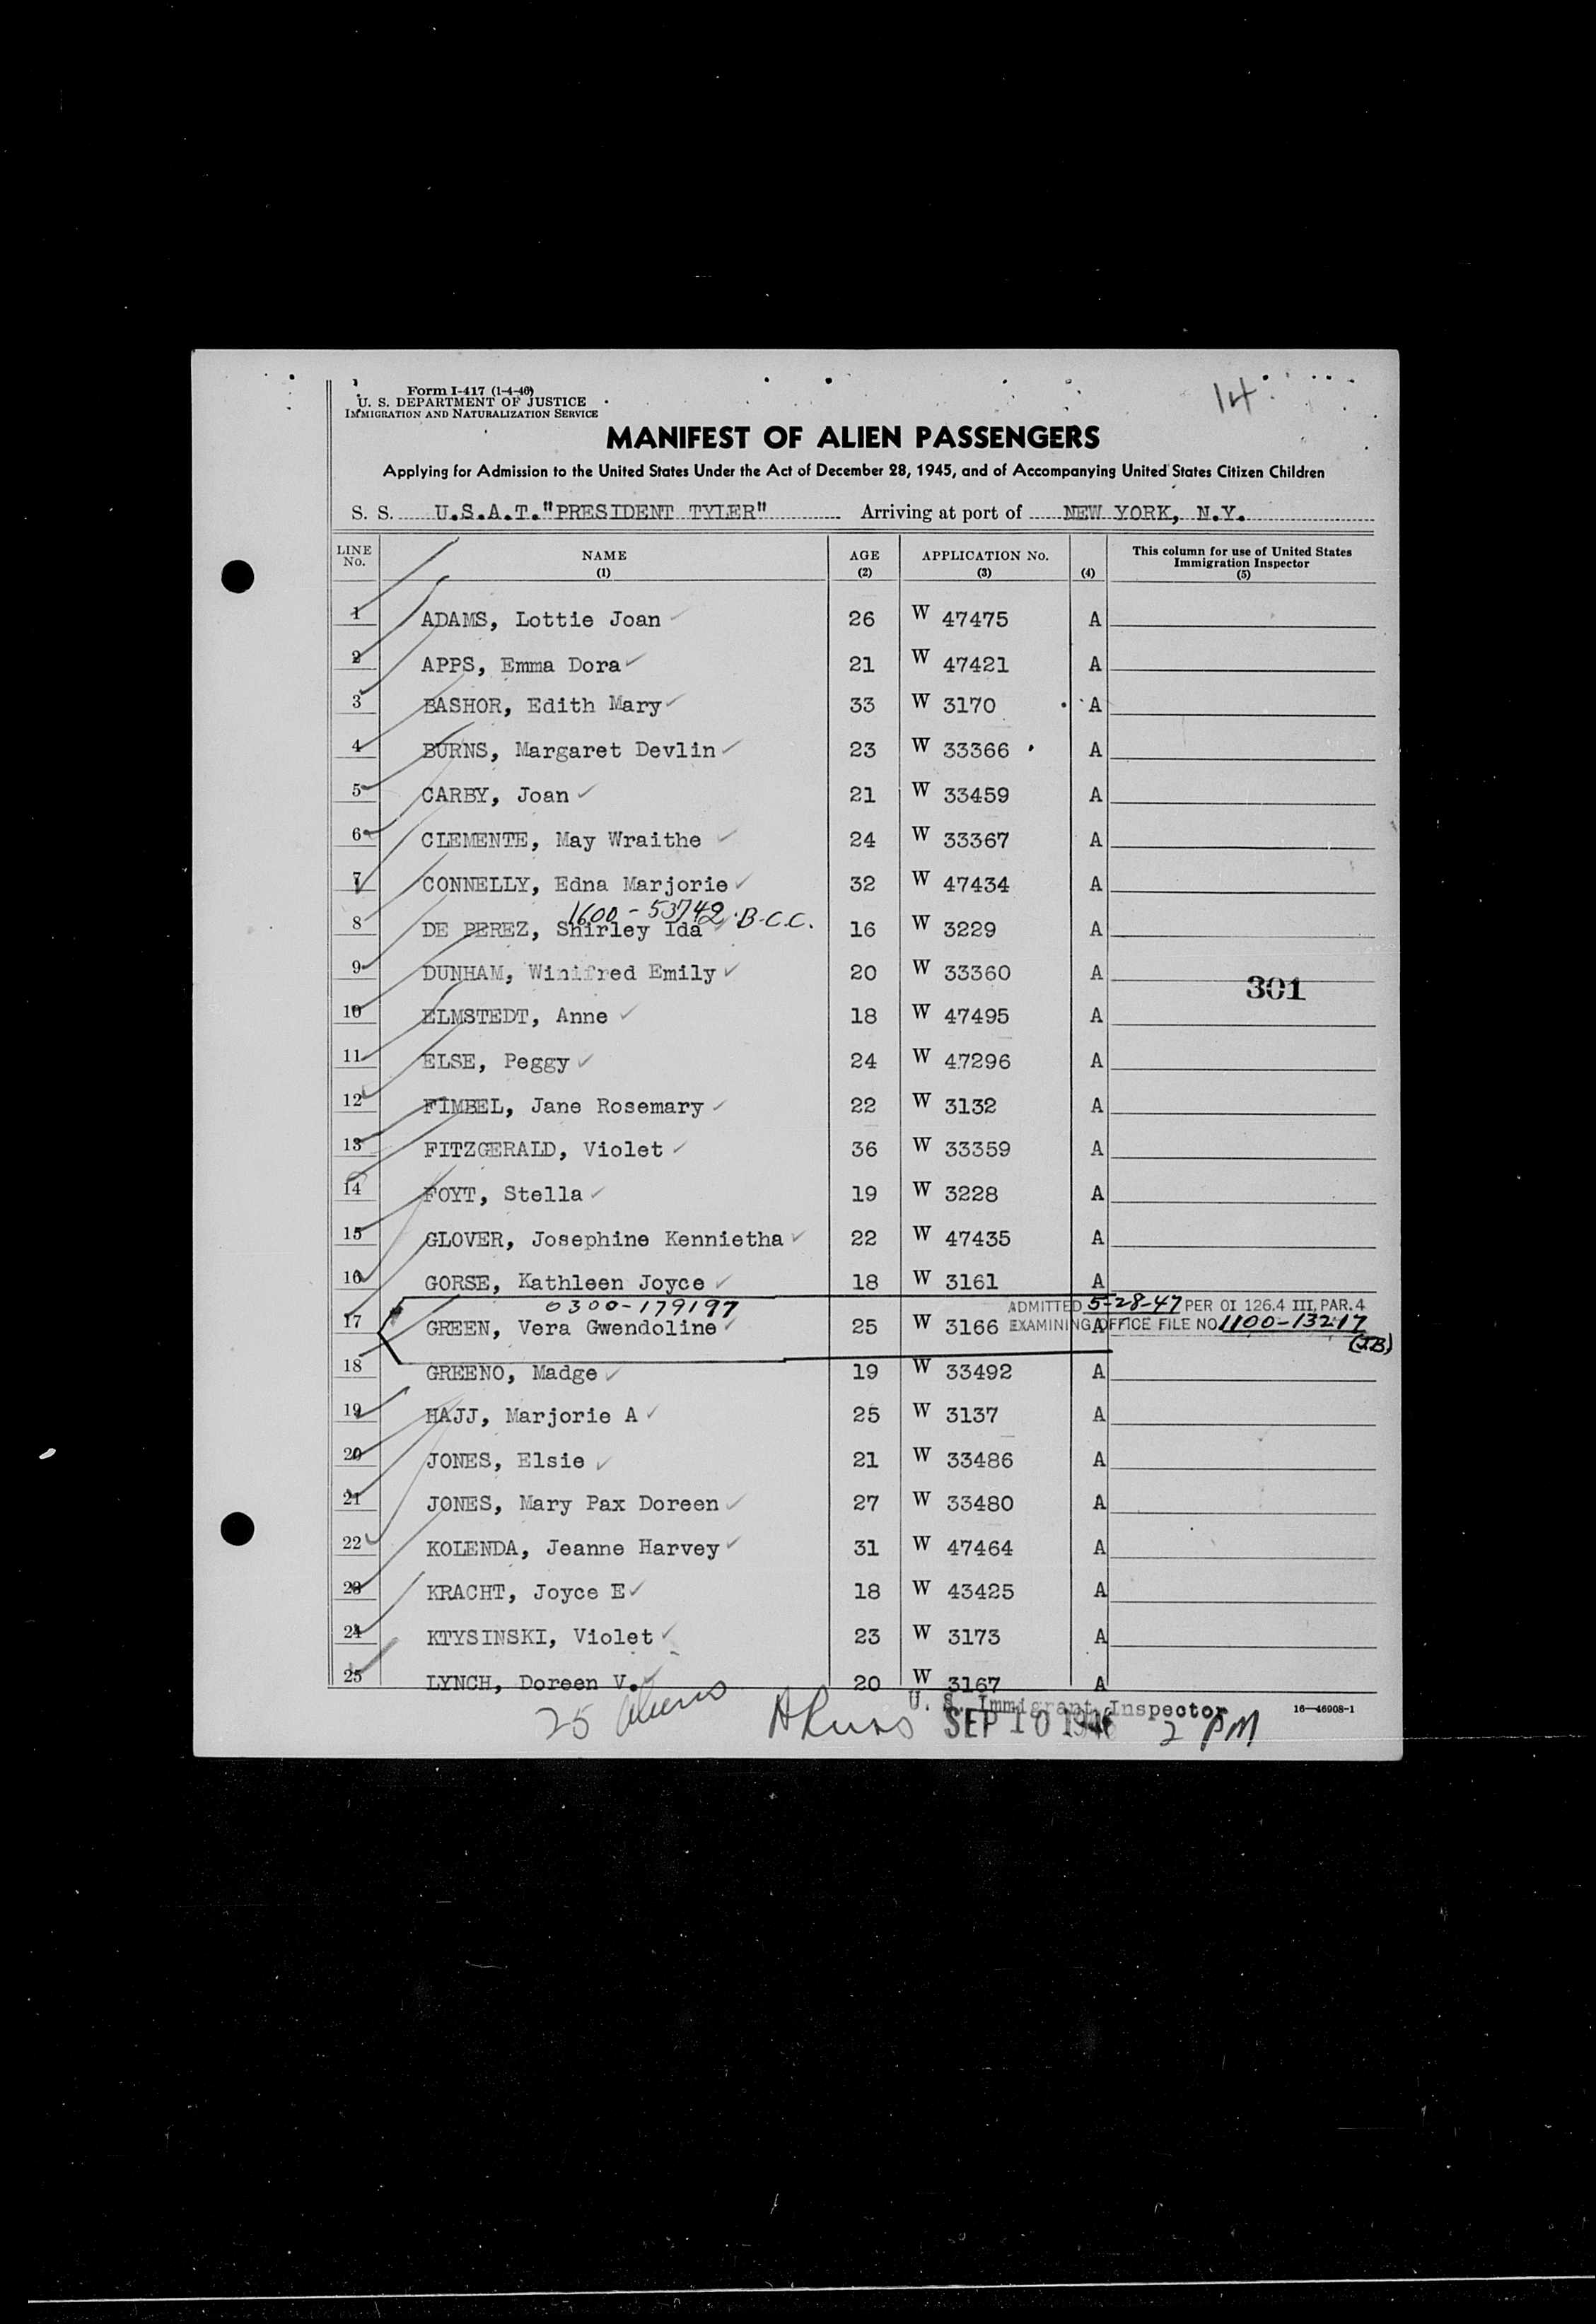 14
Form I-417 (1-4-46)
U. S. DEPARTMENT OF JUSTICE
IMMIGRATION AND NATURALIZATION SERVICE
MANIFEST OF ALIEN PASSENGERS
Applying for Admission to the United States Under the Act of December 28, 1945, and of Accompanying United States Citizen Children
S. S. U.S.A.T."PRESIDENT TYLER" Arriving at port of NEW YORK, N.Y.
LINE No. NAME (1) AGE (2) APPLICATION No. (3) (4) This column for use of United States Immigration Inspector (5)
1 ADAMS, Lottie Joan 26 W 47475 A
2 APPS, Emma Dora 21 W 47421 A
3 BASHOR, Edith Mary 33 W 3170 A
4 BURNS, Margaret Devlin 23 W 33366 A
5 CARBY, Joan 21 W 33459 A
6 CLEMENTE, May Wraithe 24 W 33367 A
7 CONNELLY, Edna Marjorie 32 W 47434 A
1600-53742 B.C.C.
8 DE PEREZ, Shirley Ida 16 W 3229 A
9 DUNHAM, Winifred Emily 20 W 33360 A
301
10 ELMSTEDT, Anne 18 W 47495 A
11 ELSE, Peggy 24 W 47296 A
12 FIMBEL, Jane Rosemary 22 W 3132 A
13 FITZGERALD, Violet 36 W 33359 A
14 FOYT, Stella 19 W 3228 A
15 GLOVER, Josephine Kennietha 22 W 47435 A
16 GORSE, Kathleen Joyce 18 W 3161 A
0300-179197 ADMITTED 5-28-47 PER OI 126.4 III, PAR. 4
17 GREEN, Vera Gwendoline 25 W 3166 A EXAMINING OFFICE FILE NO 1100-13217
(JB)
18 GREENO, Madge 19 W 33492 A
19 HAJJ, Marjorie A 25 W 3137 A
20 JONES, Elsie 21 W 33486 A
21 JONES, Mary Pax Doreen 27 W 33480 A
22 KOLENDA, Jeanne Harvey 31 W 47464 A
23 KRACHT, Joyce E 18 W 43425 A
24 KTYSINSKI, Violet 23 W 3173 A
25 LYNCH, Doreen V. 20 W 3167 A
25 aliens U. S. Immigrant Inspector 16—46908-1
SEP 10 1946 2 PM